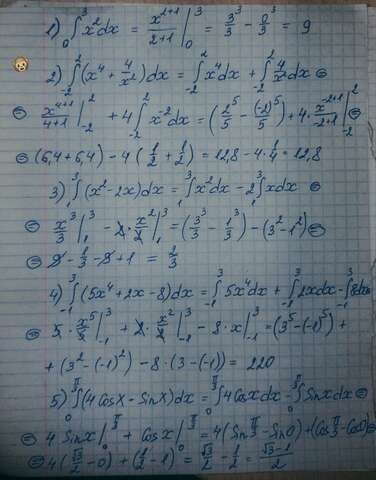 1) ∫₀³ x²dx = x²⁺¹/2+1 |₀³ = 3³/3 − 0³/3 = 9
2) ∫₋₂² (x⁴ + 4/x²)dx = ∫₋₂² x⁴dx + ∫₋₂² 4/x² dx =
= x⁴⁺¹/4+1 |₋₂² + 4∫₋₂² x⁻²dx = (2⁵/5 − (−2)⁵/5) + 4·x⁻²⁺¹/−2+1 |₋₂² =
= (6,4 + 6,4) − 4(1/2 + 1/2) = 12,8 − 4·4/4 = 12,8
3) ∫₁³ (x² − 2x)dx = ∫₁³ x²dx − 2∫₁³ xdx =
= x³/3 |₁³ − 2·x²/2 |₁³ = (3³/3 − 1³/3) − (3² − 1²) =
= 9 − 1/3 − 9 + 1 = 2/3
4) ∫₋₁³ (5x⁴ + 2x − 8)dx = ∫₋₁³ 5x⁴dx + ∫₋₁³ 2xdx − ∫₋₁³ 8dx =
= 5·x⁵/5 |₋₁³ + 2·x²/2 |₋₁³ − 8·x |₋₁³ = (3⁵ − (−1)⁵) +
+ (3² − (−1)²) − 8·(3 − (−1)) = 220
5) ∫₀^π/3 (4Cosx − Sinx)dx = ∫₀^π/3 4Cosxdx − ∫₀^π/3 Sinxdx =
= 4 Sinx |₀^π/3 + Cosx |₀^π/3 = 4(Sin π/3 − Sin0) + (Cos π/3 − Cos0) =
= 4(√3/2 − 0) + (1/2 − 1) = √3/2 − 1/2 = √3−1/2